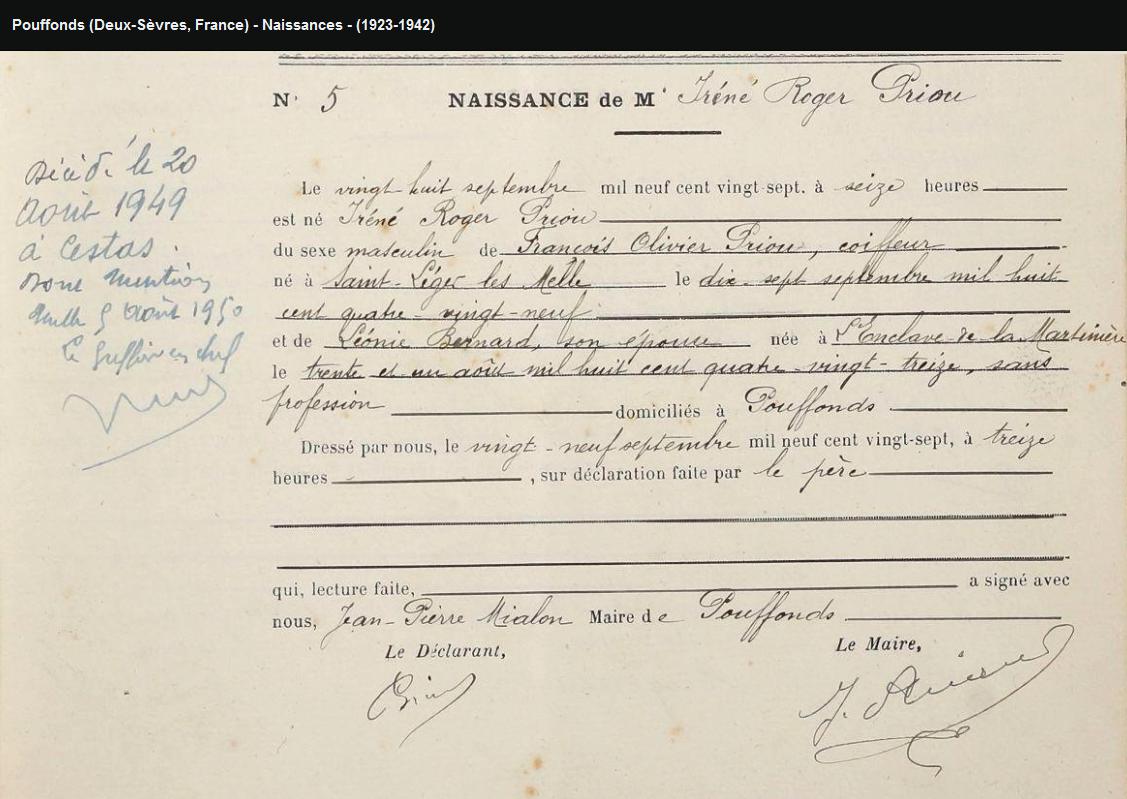 Pouffonds (Deux-Sèvres, France) - Naissances - (1923-1942)
N° 5 NAISSANCE de M' Iréné Roger Priou
Décédé le 20
Août 1949
à Cestas.
Dont mention
Melle 5 Août 1950
Le Greffier en chef
Le vingt-huit septembre mil neuf cent vingt-sept. à seize heures
est né Iréné Roger Priou
du sexe masculin de François Olivier Priou, coiffeur
né à Saint-Léger les Melle le dix-sept septembre mil huit
cent quatre-vingt-neuf
et de Léonie Bernard, son épouse née à L'Enclave-de la Martinière
le trente et un août mil huit cent quatre-vingt-treize, sans
profession domiciliés à Pouffonds
Dressé par nous, le vingt-neuf septembre mil neuf cent vingt-sept, à treize
heures , sur déclaration faite par le père
qui, lecture faite, a signé avec
nous, Jean-Pierre Mialon Maire de Pouffonds
Le Déclarant, Le Maire,
Priou